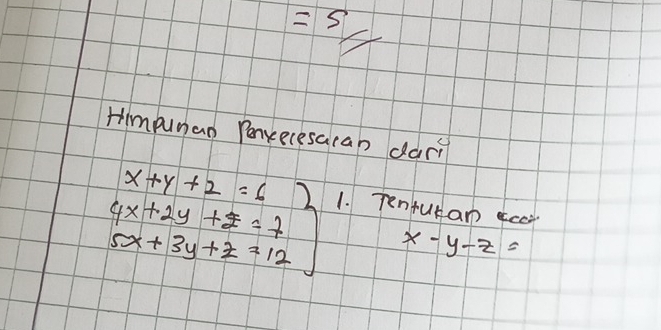 = 5
Himpunan Penyelesaian dari
x+y+z = 6
4x+2y+z = 7
5x+3y+z = 12
1. Tentukan
x-y-z =